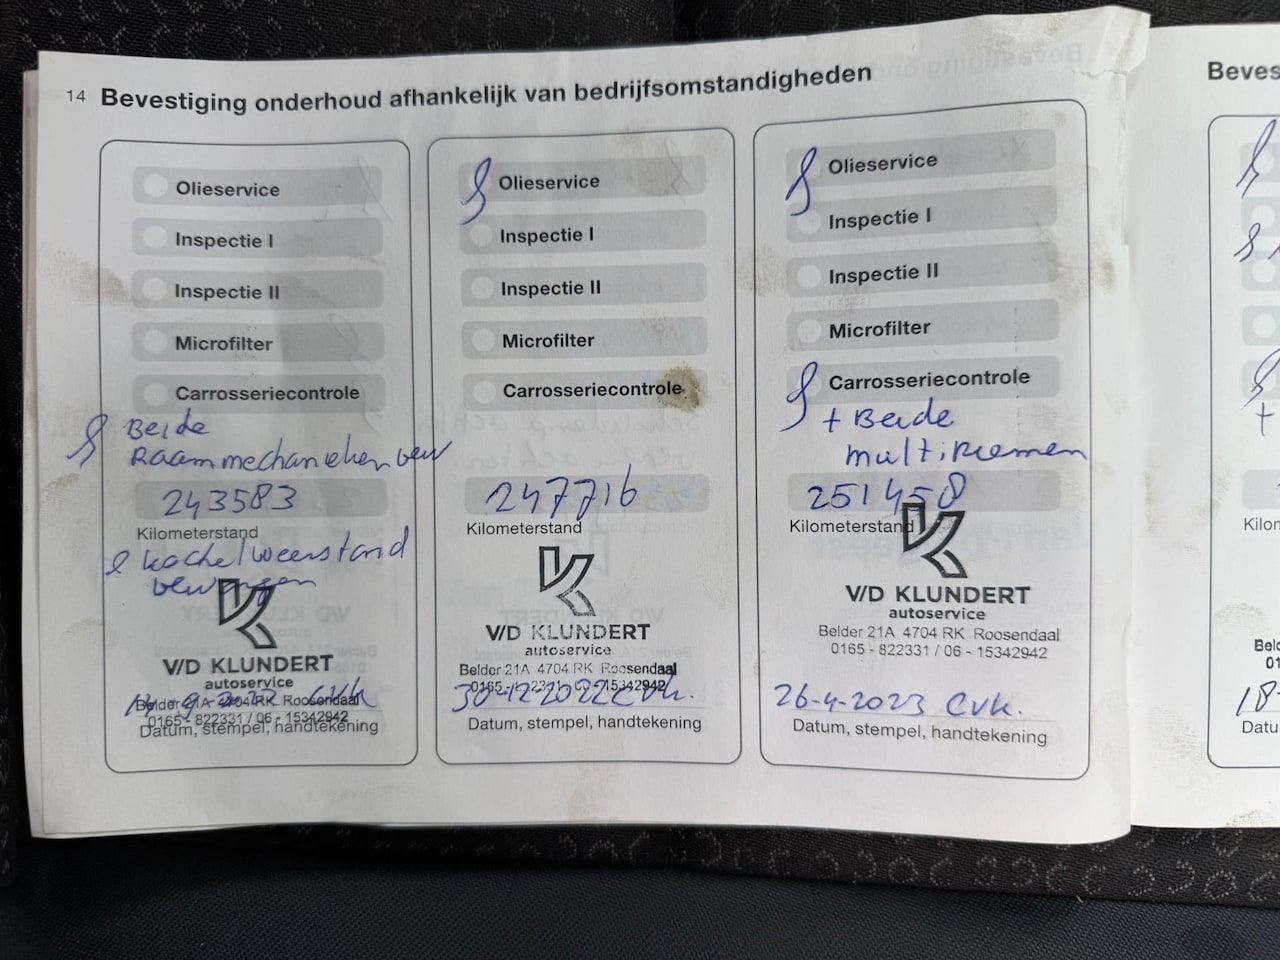 14 Bevestiging onderhoud afhankelijk van bedrijfsomstandigheden
Olieservice
Inspectie I
Inspectie II
Microfilter
Carrosseriecontrole
Beide
Raammechanieken verv
243583
Kilometerstand
kachelweerstand
vervangen
V/D KLUNDERT
autoservice
Belder 21A 4704 RK Roosendaal
0165 - 822331 / 06 - 15342942
Datum, stempel, handtekening
Olieservice
Inspectie I
Inspectie II
Microfilter
Carrosseriecontrole
247716
Kilometerstand
V/D KLUNDERT
autoservice
Belder 21A 4704 RK Roosendaal
0165 - 822331 / 06 - 15342942
30-12-2022 CVK.
Datum, stempel, handtekening
Olieservice
Inspectie I
Inspectie II
Microfilter
Carrosseriecontrole
+ Beide
multiriemen
251458
Kilometerstand
V/D KLUNDERT
autoservice
Belder 21A 4704 RK Roosendaal
0165 - 822331 / 06 - 15342942
26-4-2023 CVK.
Datum, stempel, handtekening
Beves
+
Kilon
Beld
01
18-
Datu